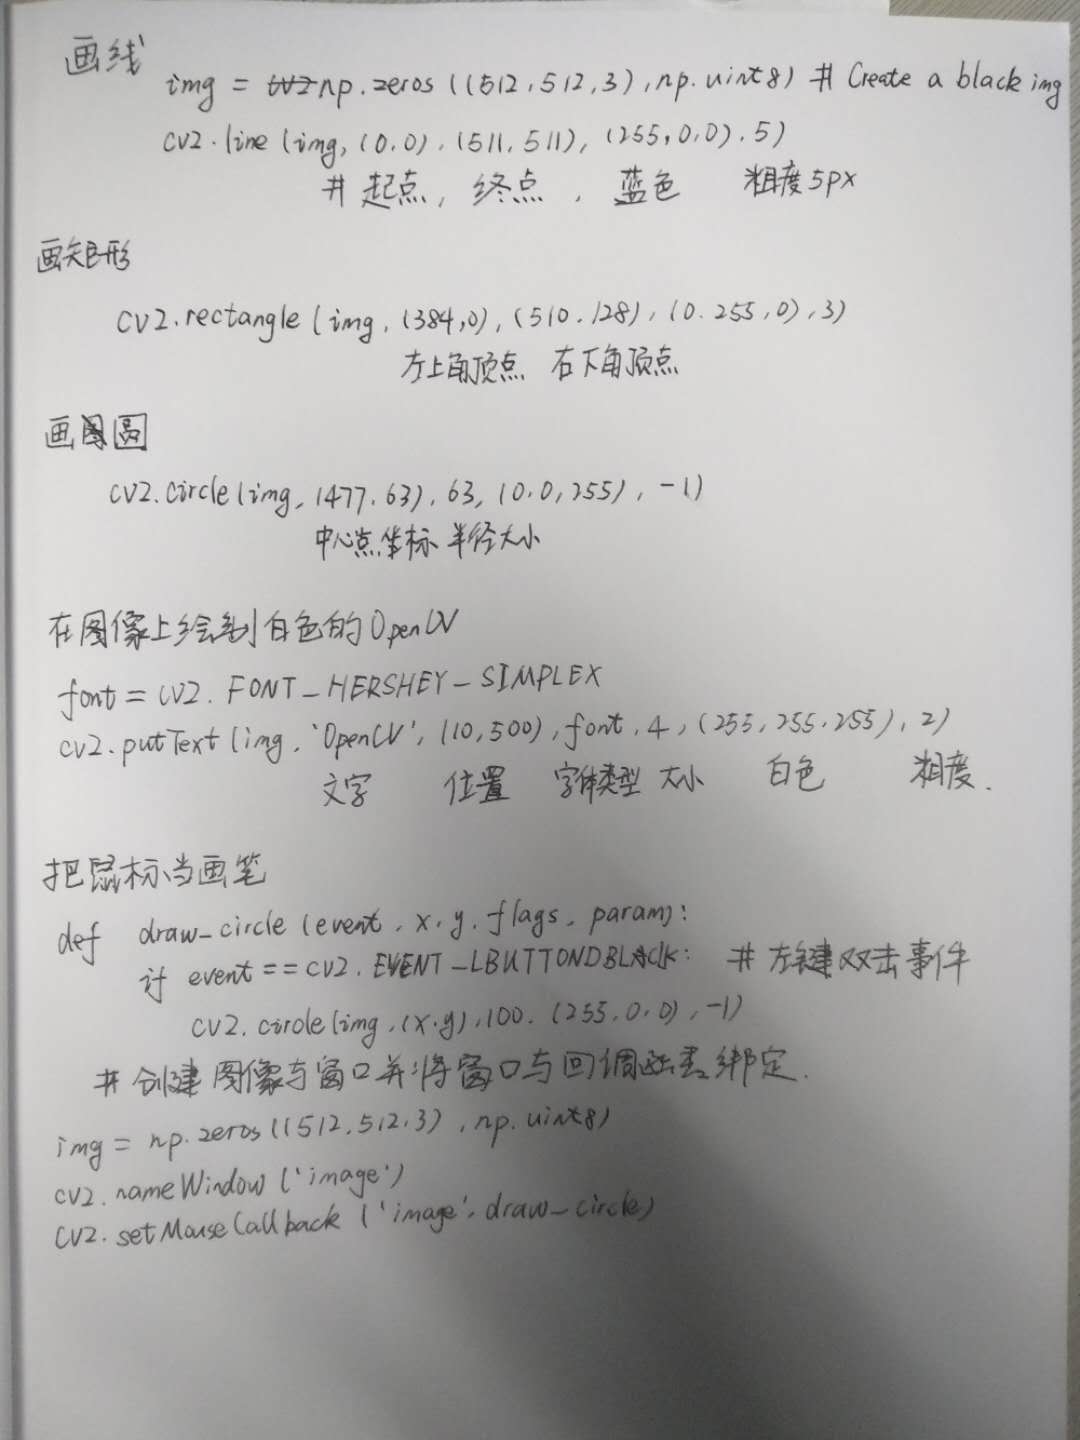 画线
img = np.zeros((512,512,3),np.uint8) # Create a black img
cv2.line(img,(0,0),(511,511),(255,0,0),5)
# 起点, 终点, 蓝色 粗度5px
画矩形
cv2.rectangle(img,(384,0),(510,128),(0,255,0),3)
左上角顶点 右下角顶点
画圆
cv2.circle(img,(477,63),63,(0,0,255),-1)
中心点坐标 半径大小
在图像上绘制白色的OpenCV
font = cv2.FONT_HERSHEY_SIMPLEX
cv2.putText(img,'OpenCV',(10,500),font,4,(255,255,255),2)
文字 位置 字体类型 大小 白色 粗度.
把鼠标当画笔
def draw_circle(event,x,y,flags,param):
if event==cv2.EVENT_LBUTTONDBLACK: # 左键双击事件
cv2.circle(img,(x,y),100,(255,0,0),-1)
# 创建图像与窗口并将窗口与回调函数绑定.
img = np.zeros((512,512,3),np.uint8)
cv2.nameWindow('image')
cv2.setMouseCallback('image',draw_circle)